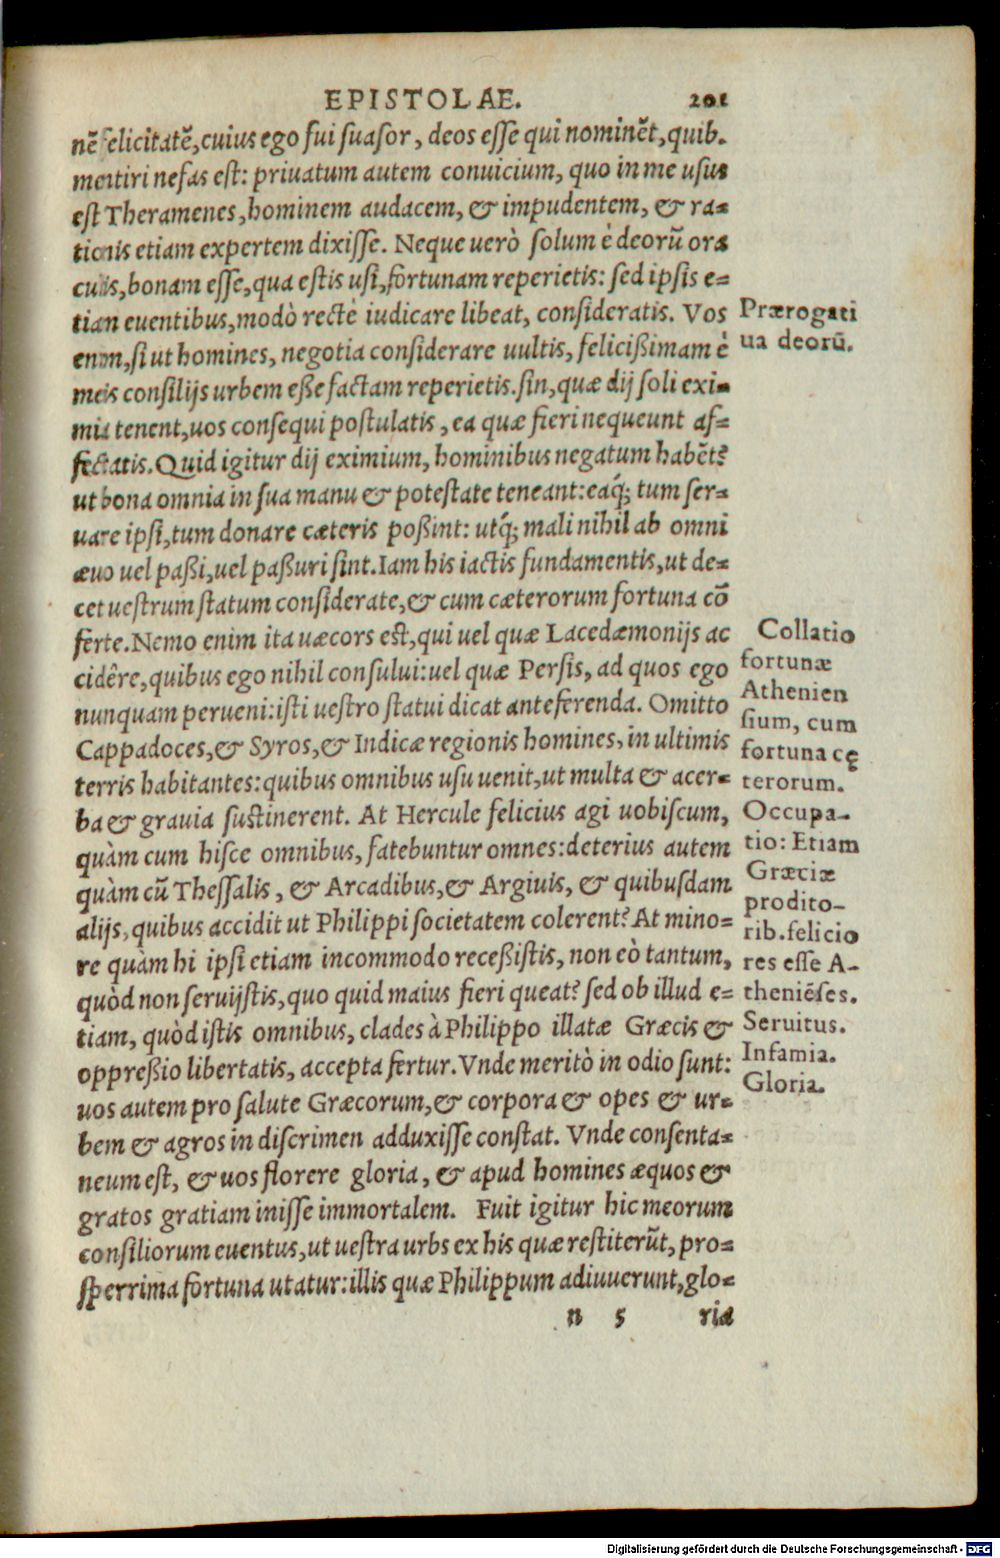 EPISTOLAE. 201
nē felicitatē, cuius ego fui suasor, deos esse qui nominēt, quib.
mentiri nefas est: priuatum autem conuicium, quo in me usus
est Theramenes, hominem audacem, & impudentem, & ra=
tionis etiam expertem dixisse. Neque uerò solum è deorū ora
culis, bonam esse, qua estis usi, fortunam reperietis: sed ipsis e=
tiam euentibus, modò recte iudicare libeat, consideratis. Vos
enim, si ut homines, negotia considerare uultis, felicißimam è
meis consilijs urbem eße factam reperietis. sin, quæ dij soli exi=
mia tenent, uos consequi postulatis, ea quæ fieri nequeunt af=
fectatis. Quid igitur dij eximium, hominibus negatum habēt?
ut bona omnia in sua manu & potestate teneant: eaq́; tum ser=
uare ipsi, tum donare cæteris poßint: utq́; mali nihil ab omni
æuo uel paßi, uel paßuri sint. Iam his iactis fundamentis, ut de=
cet uestrum statum considerate, & cum cæterorum fortuna cō
ferte. Nemo enim ita uæcors est, qui uel quæ Lacedæmonijs ac
cidêre, quibus ego nihil consului: uel quæ Persis, ad quos ego
nunquam perueni: isti uestro statui dicat anteferenda. Omitto
Cappadoces, & Syros, & Indicæ regionis homines, in ultimis
terris habitantes: quibus omnibus usu uenit, ut multa & acer=
ba & grauia sustinerent. At Hercule felicius agi uobiscum,
quàm cum hisce omnibus, fatebuntur omnes: deterius autem
quàm cū Thessalis, & Arcadibus, & Argiuis, & quibusdam
alijs, quibus accidit ut Philippi societatem colerent? At mino=
re quàm hi ipsi etiam incommodo receßistis, non eò tantum,
quòd non seruijstis, quo quid maius fieri queat? sed ob illud e=
tiam, quòd istis omnibus, clades à Philippo illatæ Græcis &
oppreßio libertatis, accepta fertur. Vnde meritò in odio sunt:
uos autem pro salute Græcorum, & corpora & opes & ur=
bem & agros in discrimen adduxisse constat. Vnde consenta=
neum est, & uos florere gloria, & apud homines æquos &
gratos gratiam inisse immortalem. Fuit igitur hic meorum
consiliorum euentus, ut uestra urbs ex his quæ restiterūt, pro=
sperrima fortuna utatur: illis quæ Philippum adiuuerunt, glo=
n 5 ria
Prærogati
ua deorū.
Collatio
fortunæ
Athenien
sium, cum
fortuna cę
terorum.
Occupa-
tio: Etiam
Græciæ
prodito-
rib. felicio
res esse A-
theniēses.
Seruitus.
Infamia.
Gloria.
Digitalisierung gefördert durch die Deutsche Forschungsgemeinschaft - DFG